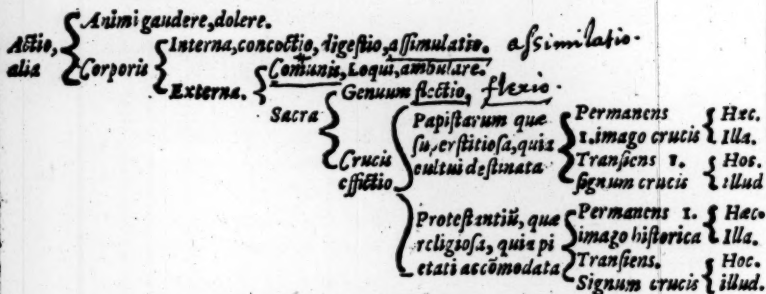 Animi gaudere, dolere.
Actio,
alia
Corporis
Interna, concoctio, digeſtio, aſſimulatio. aſſimilatio.
Externa.
Comunis, Loqui, ambulare.
Sacra
Genuum flectio, flexio.
Crucis
effictio
Papiſtarum quæ
ſuperſtitioſa, quia
cultui deſtinata
Permanens
1. imago crucis
Hæc.
Illa.
Tranſiens 1.
ſignum crucis
Hos.
illud
Proteſtantiũ, quæ
religioſa, quia pi
etati accõmodata
Permanens 1.
imago hiſtorica
Hæc.
Illa.
Tranſiens.
Signum crucis
Hoc.
illud.